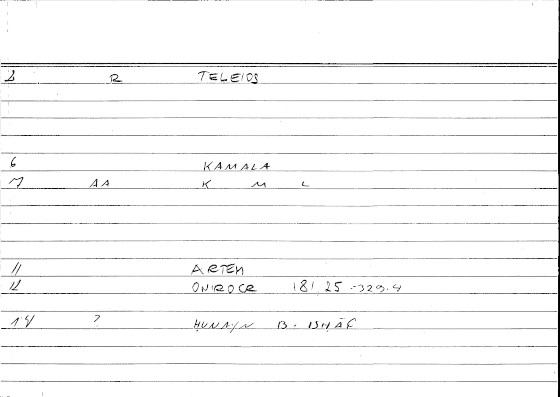 2 R TELEIOS
6 KAMALA
7 AA K M L
11 ARTEM
12 ONIROCR 181, 25 - 329.4
14 ? HUNAYN B. ISḤĀḲ